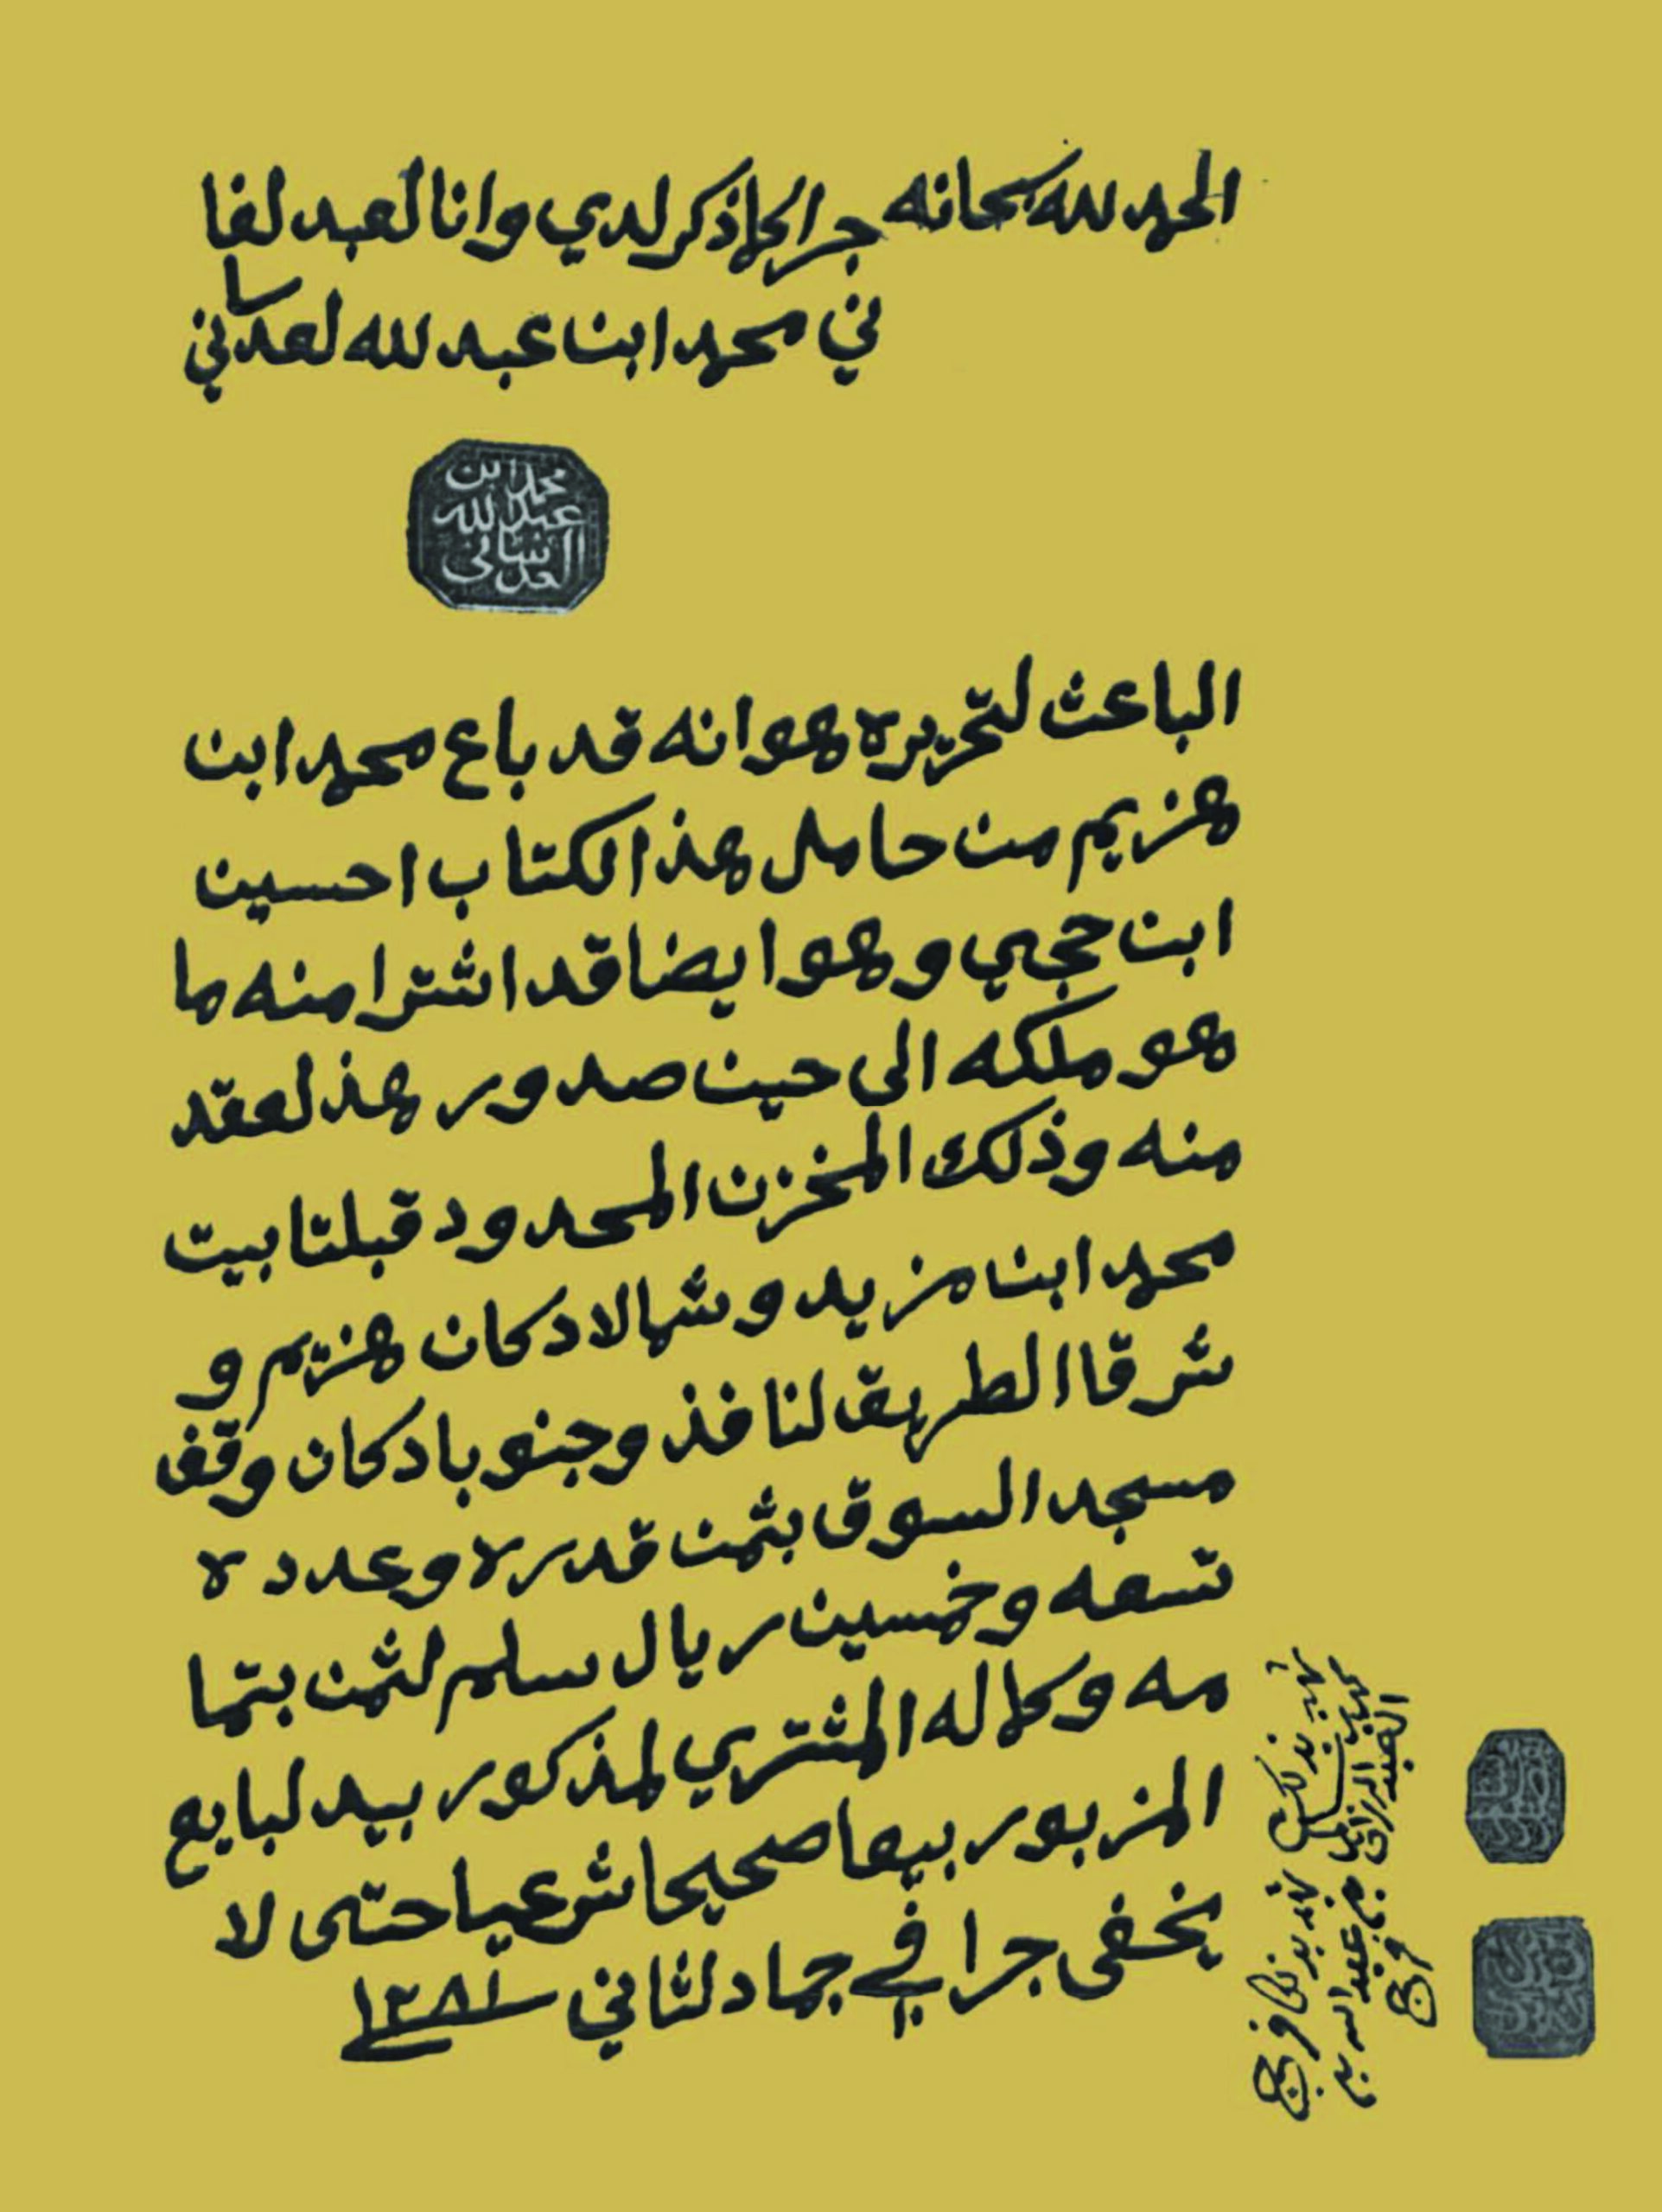 الحمد لله سبحانه جرا كلما ذكر لدي وانا لعبد لفا
ني محمد ابن عبد لله لعدساني
محمد ابن
عبد الله
العدساني
الباعث لتحريره هو انه قد باع محمد ابن
هزيم من حامل هذا الكتاب احسين
ابن حجي وهو ايضا قد اشترا منه ما
هو ملكه الى حين صدور هذ لعقد
منه وذلك المخزن المحدود قبلتا بيت
محمد ابن مزيد وشمالا دكان هزيم و
شرقا الطريق لنافذ وجنوبا دكان وقف
مسجد السوق بثمن قدره وعدده
تسعه وخمسين ريال سلم لثمن بتما
مه وكماله المشتري لمذكور بيد لبايع
المزبور بيعا صحيحا شرعيا حتى لا
يخفى جرا في جماد لثاني سنة ١٢٨١
شهد بذلك
شهد بذلك فرج